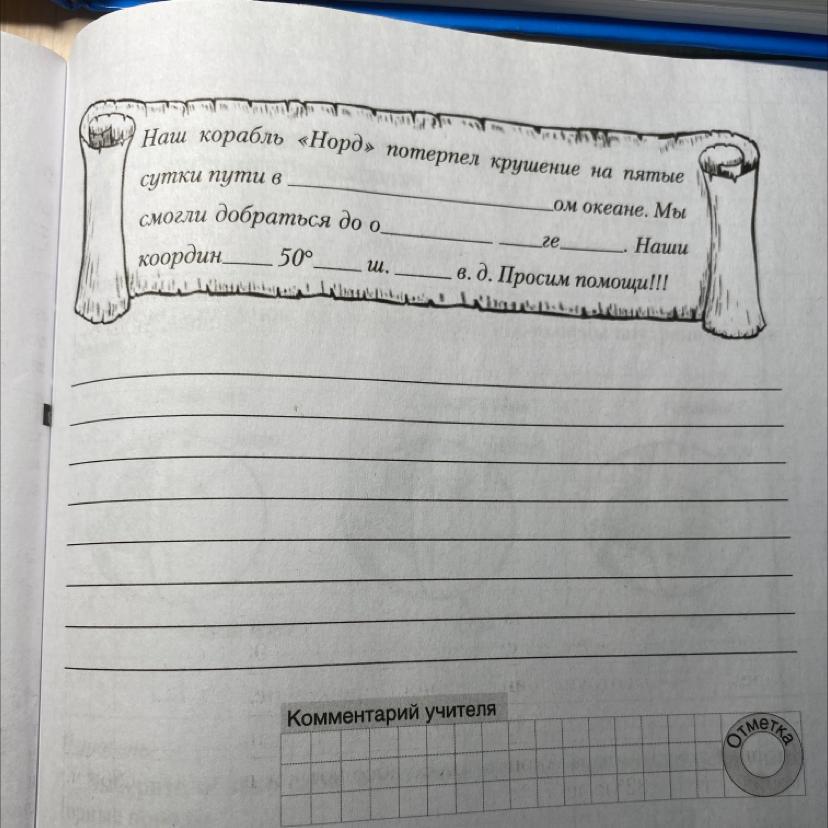 Наш корабль «Норд» потерпел крушение на пятые
сутки пути в ____________________ом океане. Мы
смогли добраться до о_________ ____ге______. Наши
координ____ 50°____ ш. ____ в. д. Просим помощи!!!
Комментарий учителя
Отметка